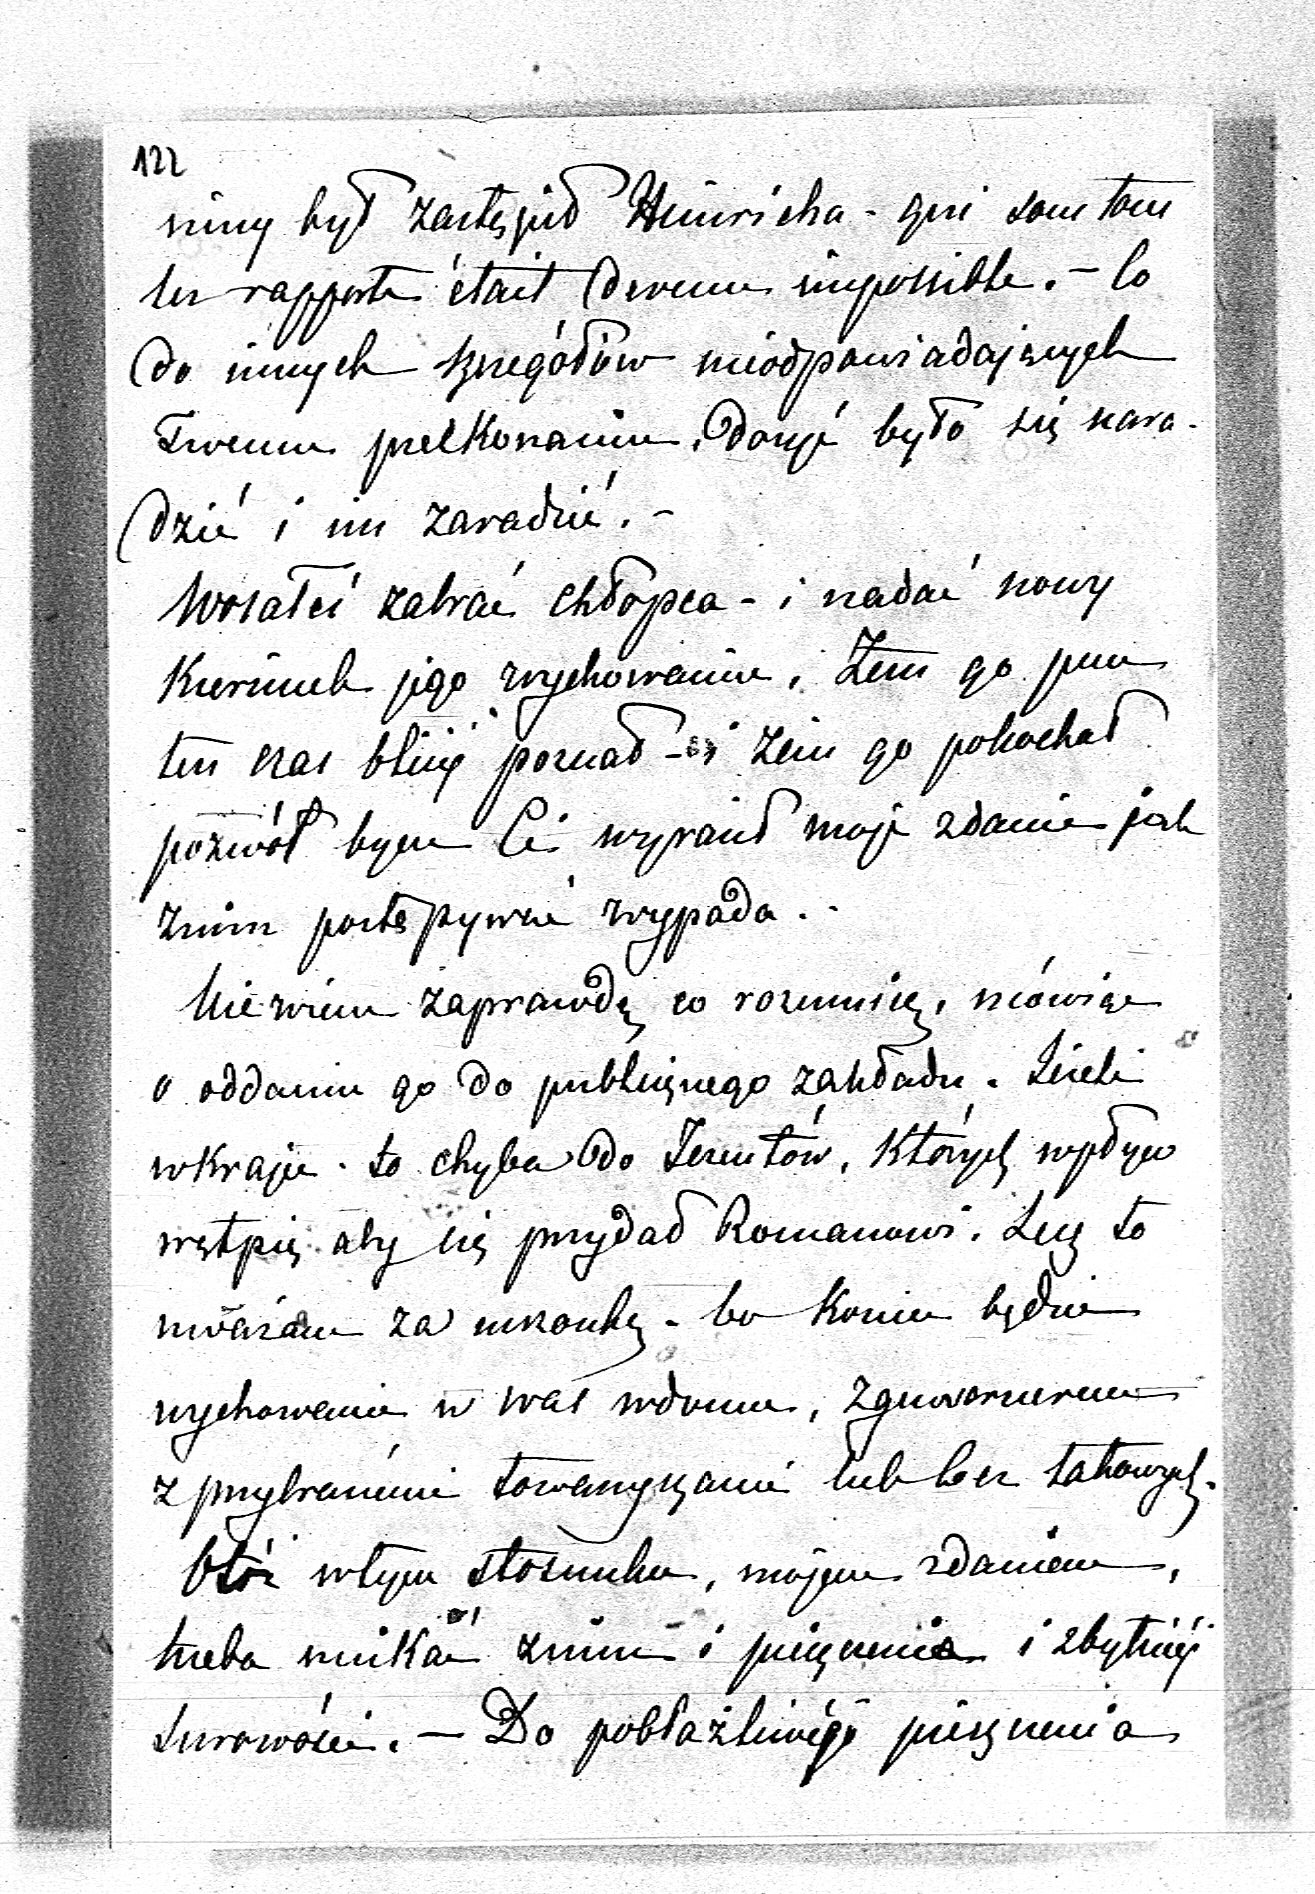 122
inny był zastąpił Heinricha - qui sous tous
les rapports était devenu impossible. - Co
do innych szczegółów nieodpowiadających
Twemu przekonaniu, dosyć było się nara-
dzić i im zaradzić. -
Wolałeś zabrać chłopca - i nadać nowy
kierunek jego wychowaniu, Żem go przez
ten czas bliżej poznał - i żem go pokochał
pozwól bym Ci wyraził moje zdanie jak
znim postępywać wypada. -
Nie wiem zaprawdę co rozumieć, mówiąc
o oddaniu go do publicznego zakładu. Jeżeli
wkraju - to chyba do Jezuitów, których wpływ
wątpię aby się przydał Romanowi. Lecz to
uważam za mrzonkę - bo koniec będzie
wychowanie u was wdomu, zguwernerem
z przybranémi towarzyszami lub bez takowych.
Otóż wtym stosunku, mojem zdaniem,
trzeba unikać znim i pieszczenia i zbytniéj
surowości. - Do pobłażliwégo pieszczenia